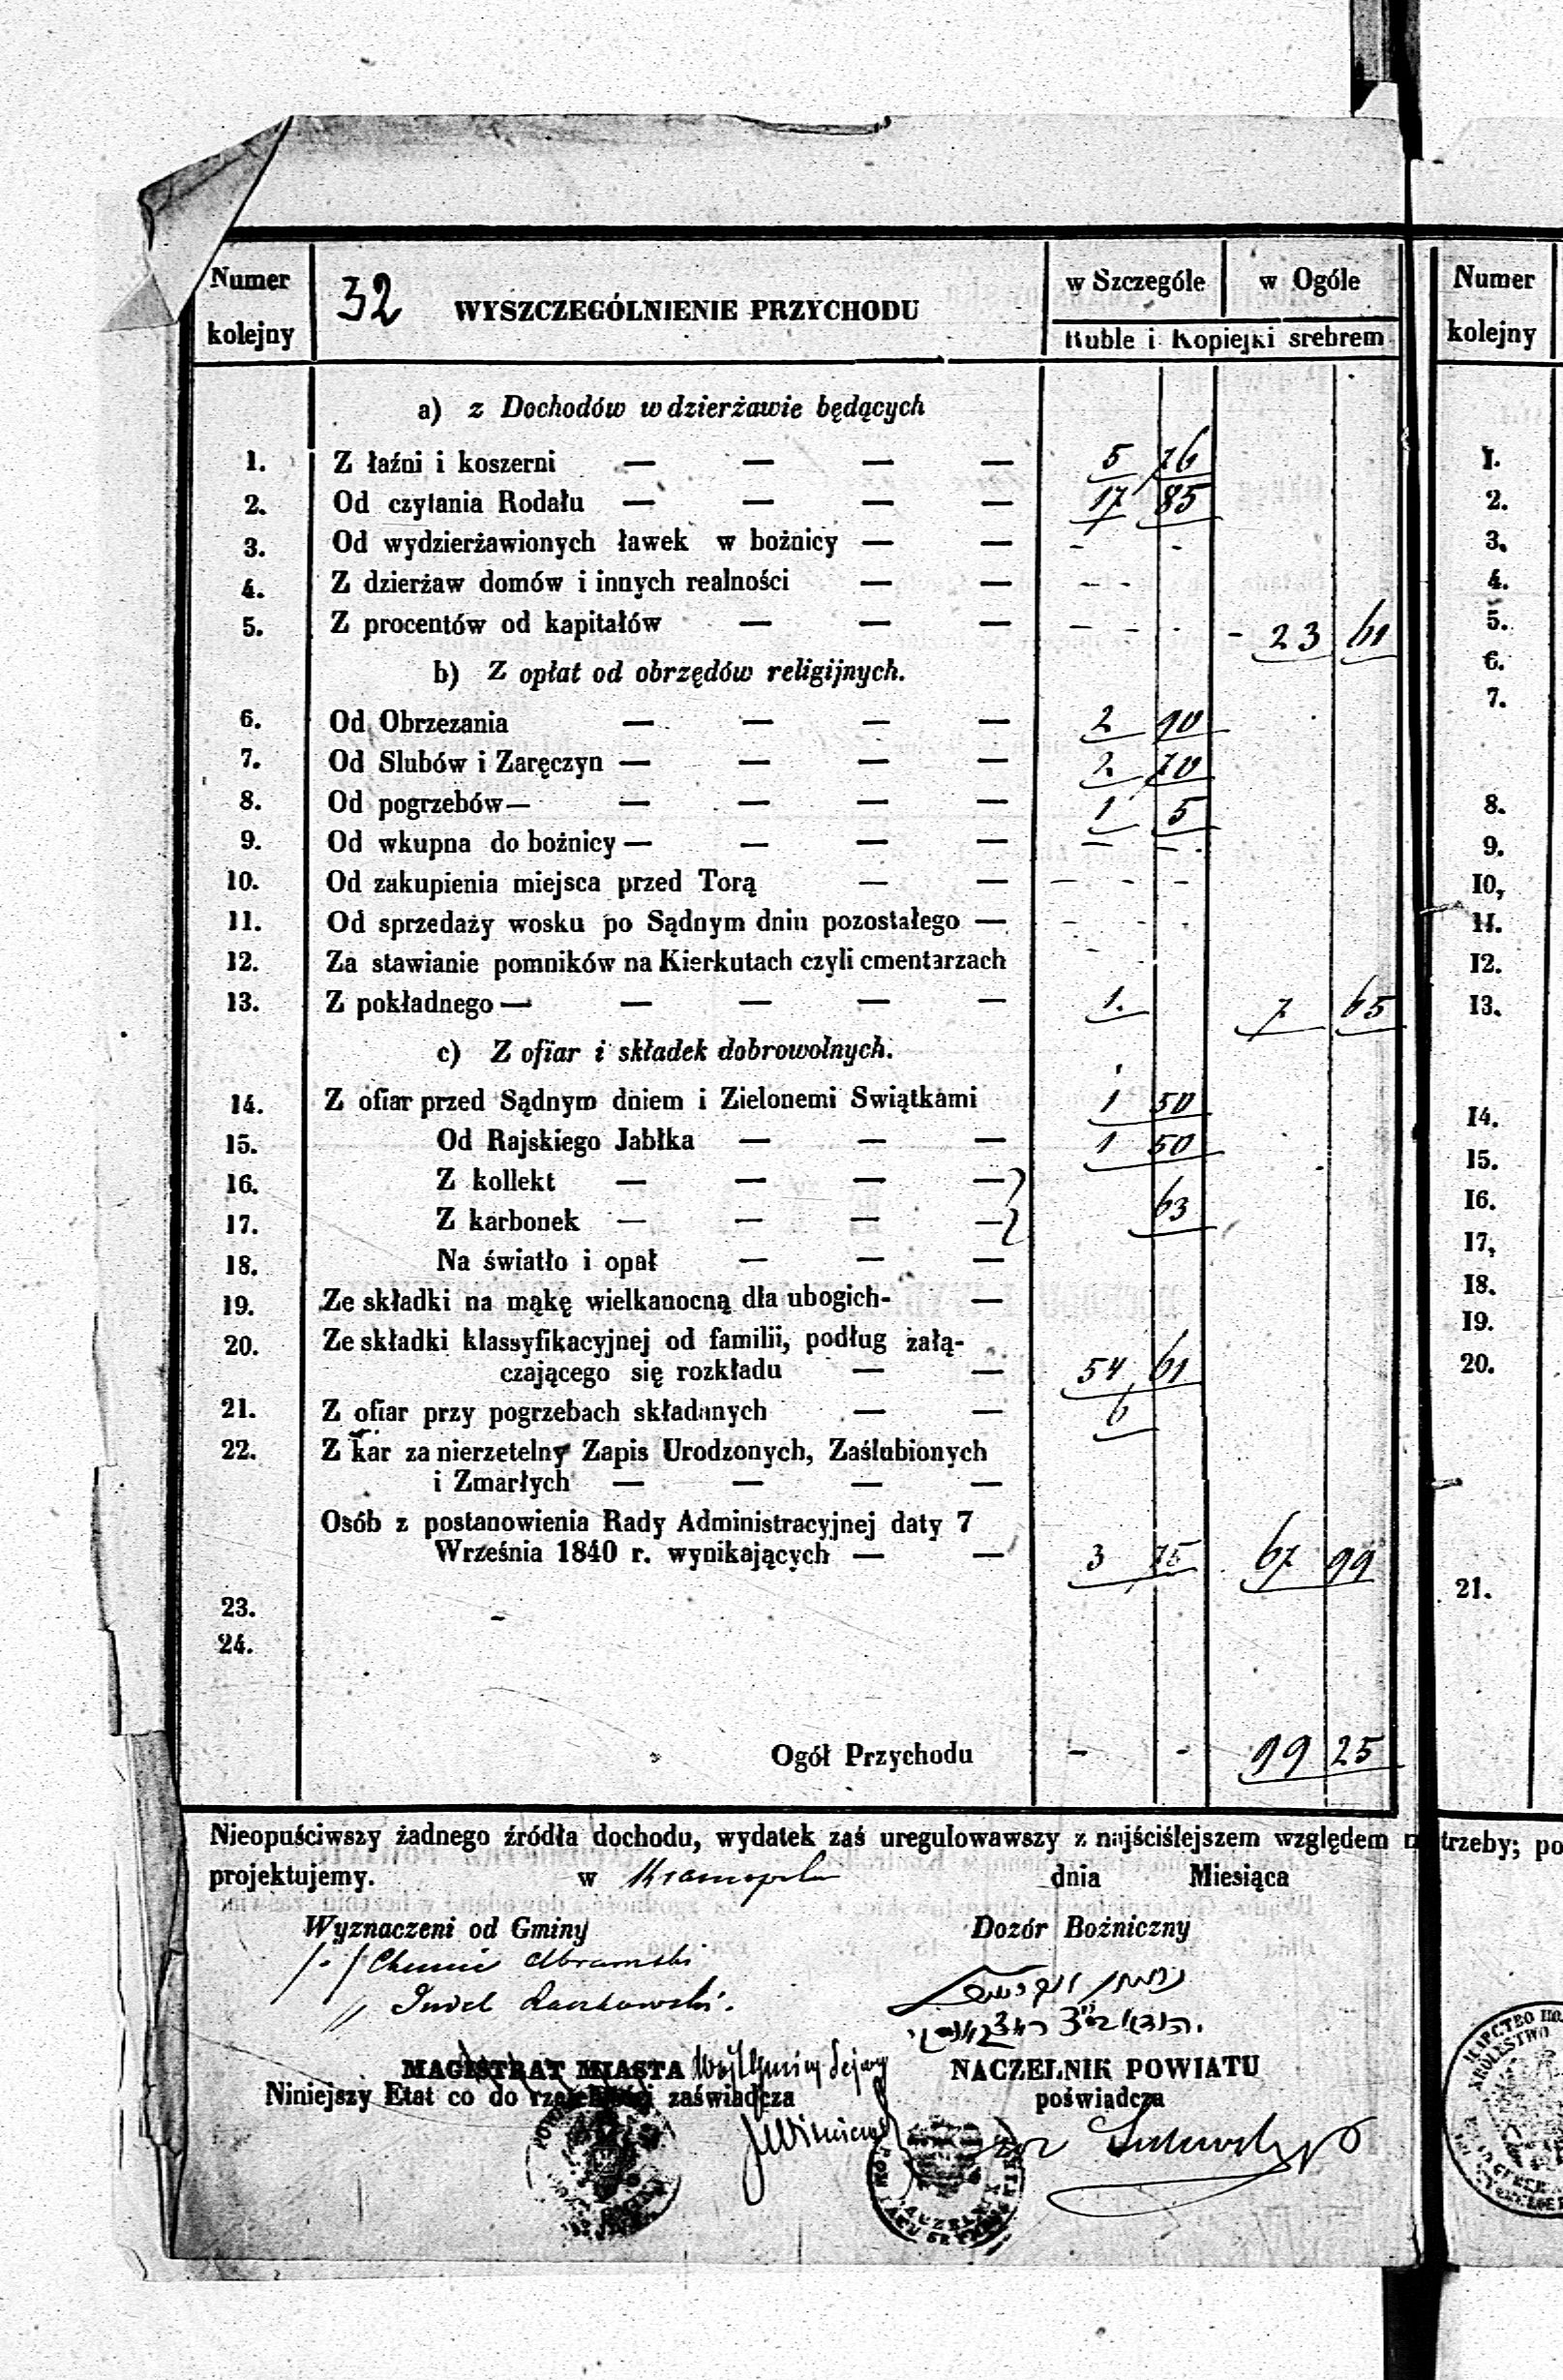 Numer kolejny 32 WYSZCZEGÓLNIENIE PRZYCHODU w Szczególe w Ogóle Numer kolejny
Ruble i Kopiejki srebrem
a) z Dochodów w dzierżawie będących
1. Z łaźni i koszerni — — — — 5 76 1.
2. Od czytania Rodału — — — — 17 85 2.
3. Od wydzierżawionych ławek w bożnicy — — - - 3.
4. Z dzierżaw domów i innych realności — — - - 4.
5. Z procentów od kapitałów — — — - - - - 23 61 5.
6.
b) Z opłat od obrzędów religijnych.
7.
6. Od Obrzezania — — — — 2 90
7. Od Slubów i Zaręczyn — — — — 2. 70
8. Od pogrzebów — — — — — 1 5 8.
9. Od wkupna do bożnicy — — — — - - 9.
10. Od zakupienia miejsca przed Torą — — - - - 10,
11. Od sprzedaży wosku po Sądnym dniu pozostałego — - - - 11.
12. Za stawianie pomników na Kierkutach czyli cmentarzach - 12.
13. Z pokładnego — — — — — 1. 7 65 13.
c) Z ofiar i składek dobrowolnych.
14. Z ofiar przed Sądnym dniem i Zielonemi Swiątkami 1 50 14.
15. Od Rajskiego Jabłka — — — 1 50 15.
16. Z kollekt — — — — 16.
17. Z karbonek — — — — 63 17,
18. Na światło i opał — — — 18.
19. Ze składki na mąkę wielkanocną dla ubogich- — 19.
20. Ze składki klassyfikacyjnej od familii, podług załą-
czającego się rozkładu — — 54 61 20.
21. Z ofiar przy pogrzebach składanych — — 6
22. Z kar za nierzetelny Zapis Urodzonych, Zaślubionych
i Zmarłych — — — —
Osób z postanowienia Rady Administracyjnej daty 7
Września 1840 r. wynikających — — 3 75 67 99
21.
23. -
24.
Ogół Przychodu - - 99 25
Nieopuściwszy żadnego źródła dochodu, wydatek zaś uregulowawszy z najściślejszem względem trzeby; po
projektujemy. w dnia Miesiąca
Wyznaczeni od Gminy Dozór Bożniczny
Abramski
Judel
MAGISTRAT MIASTA Wójt Gminy Sejwy NACZELNIK POWIATU
Niniejszy Etat co do rzetelności zaświadcza poświadcza